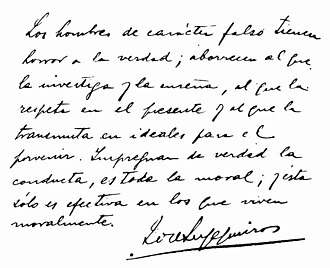 Los hombres de carácter falso tienen
horror a la verdad; aborrecen al que
la investiga y la enseña, al que la
respeta en el presente y al que la
transmuta en ideales para el
porvenir. Impregnar de verdad la
conducta, es toda la moral; y ésta
sólo es efectiva en los que viven
moralmente.